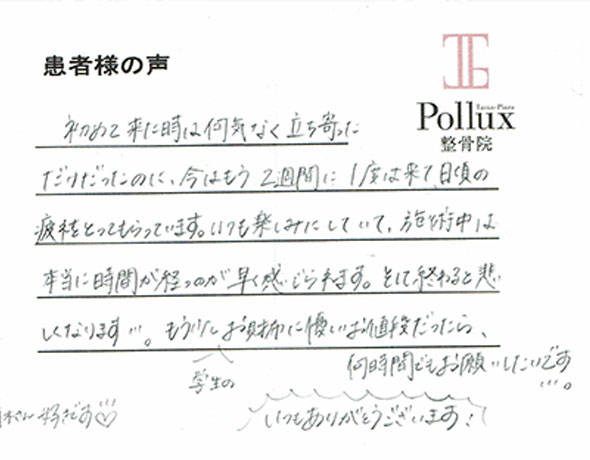 患者様の声
Taiyo-Plaza
Pollux
整骨院
初めて来た時は何気なく立ち寄った
だけだったのに、今はもう2週間に1度は来て日頃の
疲れをとってもらっています。いつも楽しみにしていて、施術中は
本当に時間が経つのが早く感じられます。そして終わると悲
しくなります…。もう少しお財布に優しいお値段だったら、
学生の
何時間でもお願いしたいです
…。
さん好きです♡
いつもありがとうございます!